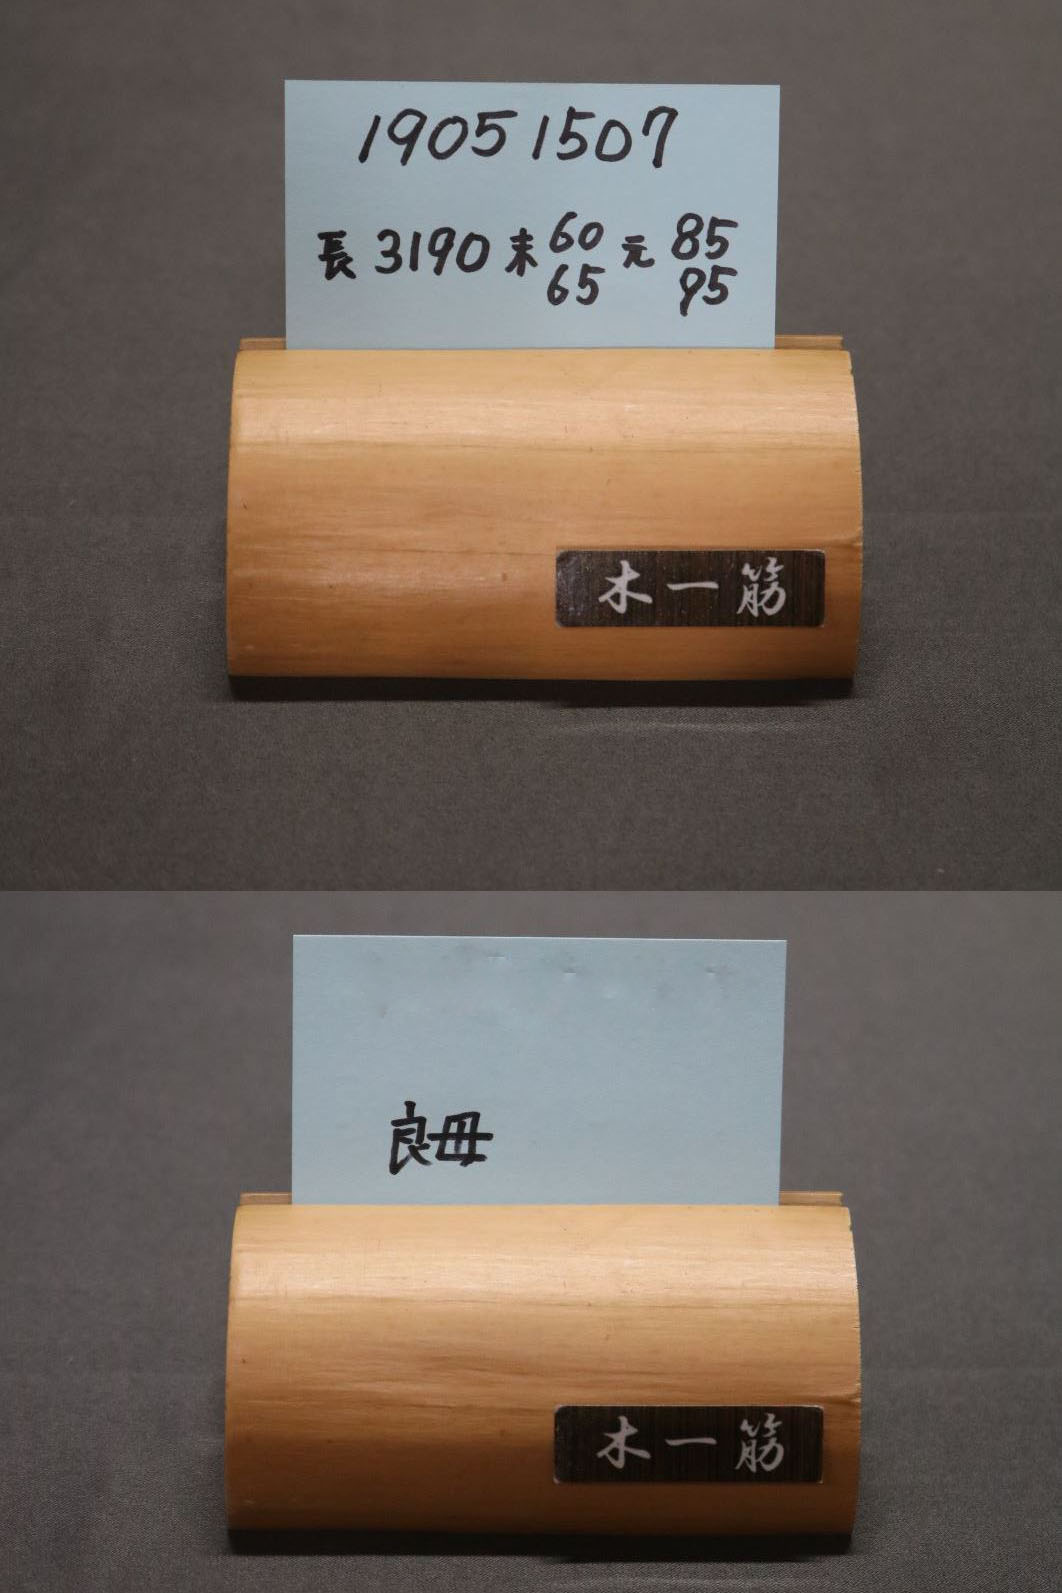 19051507
長 3190 末 60 元 85
65 95
木一筋
良母
木一筋